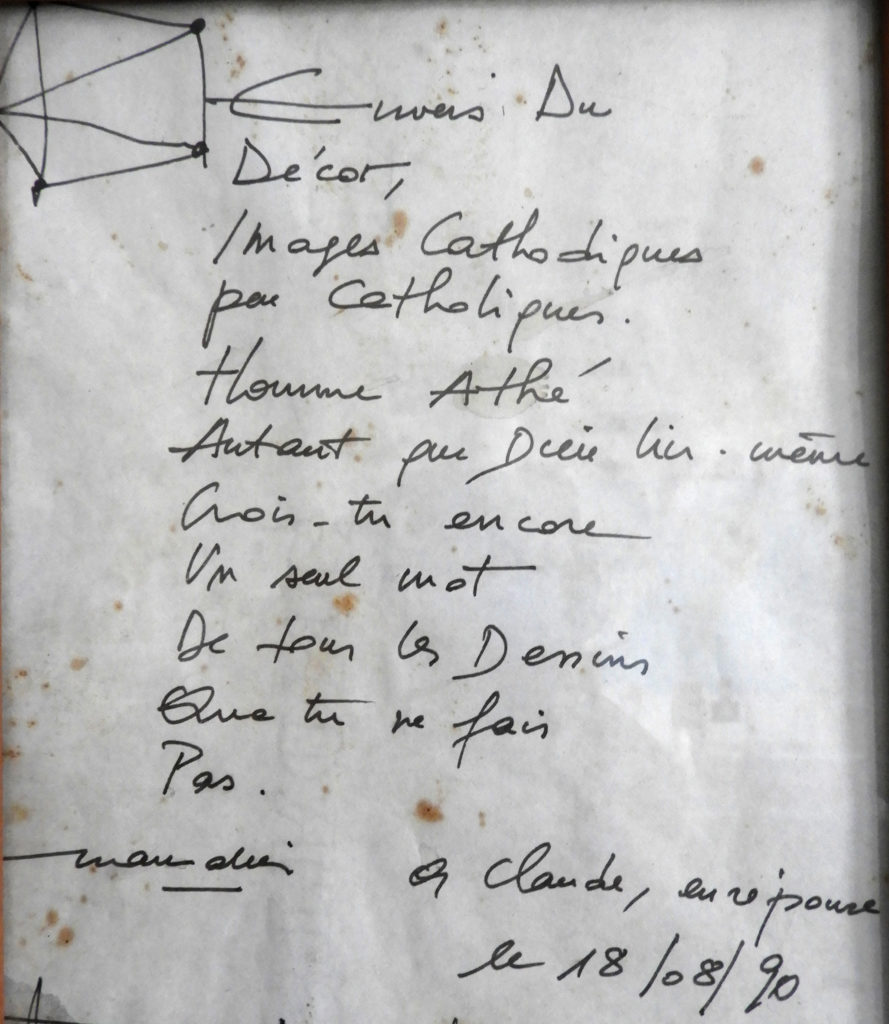 Envers Du
Décor,
Images Cathodiques
peu Catholiques.
Homme Athé
Autant que Dieu lui-même
Crois-tu encore
Un seul mot
De tous les Dessins
Que tu ne fais
Pas.
à Claude, en réponse
le 18/08/90